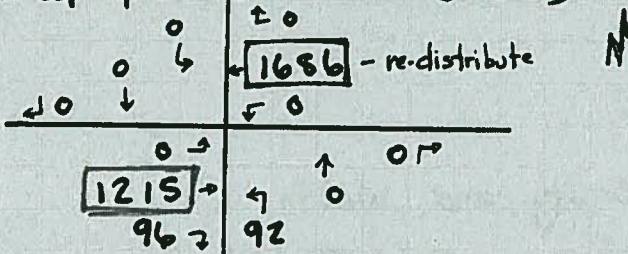 0 0
0 1686 - re-distribute N
0 0
0 0
1215 0
96 92